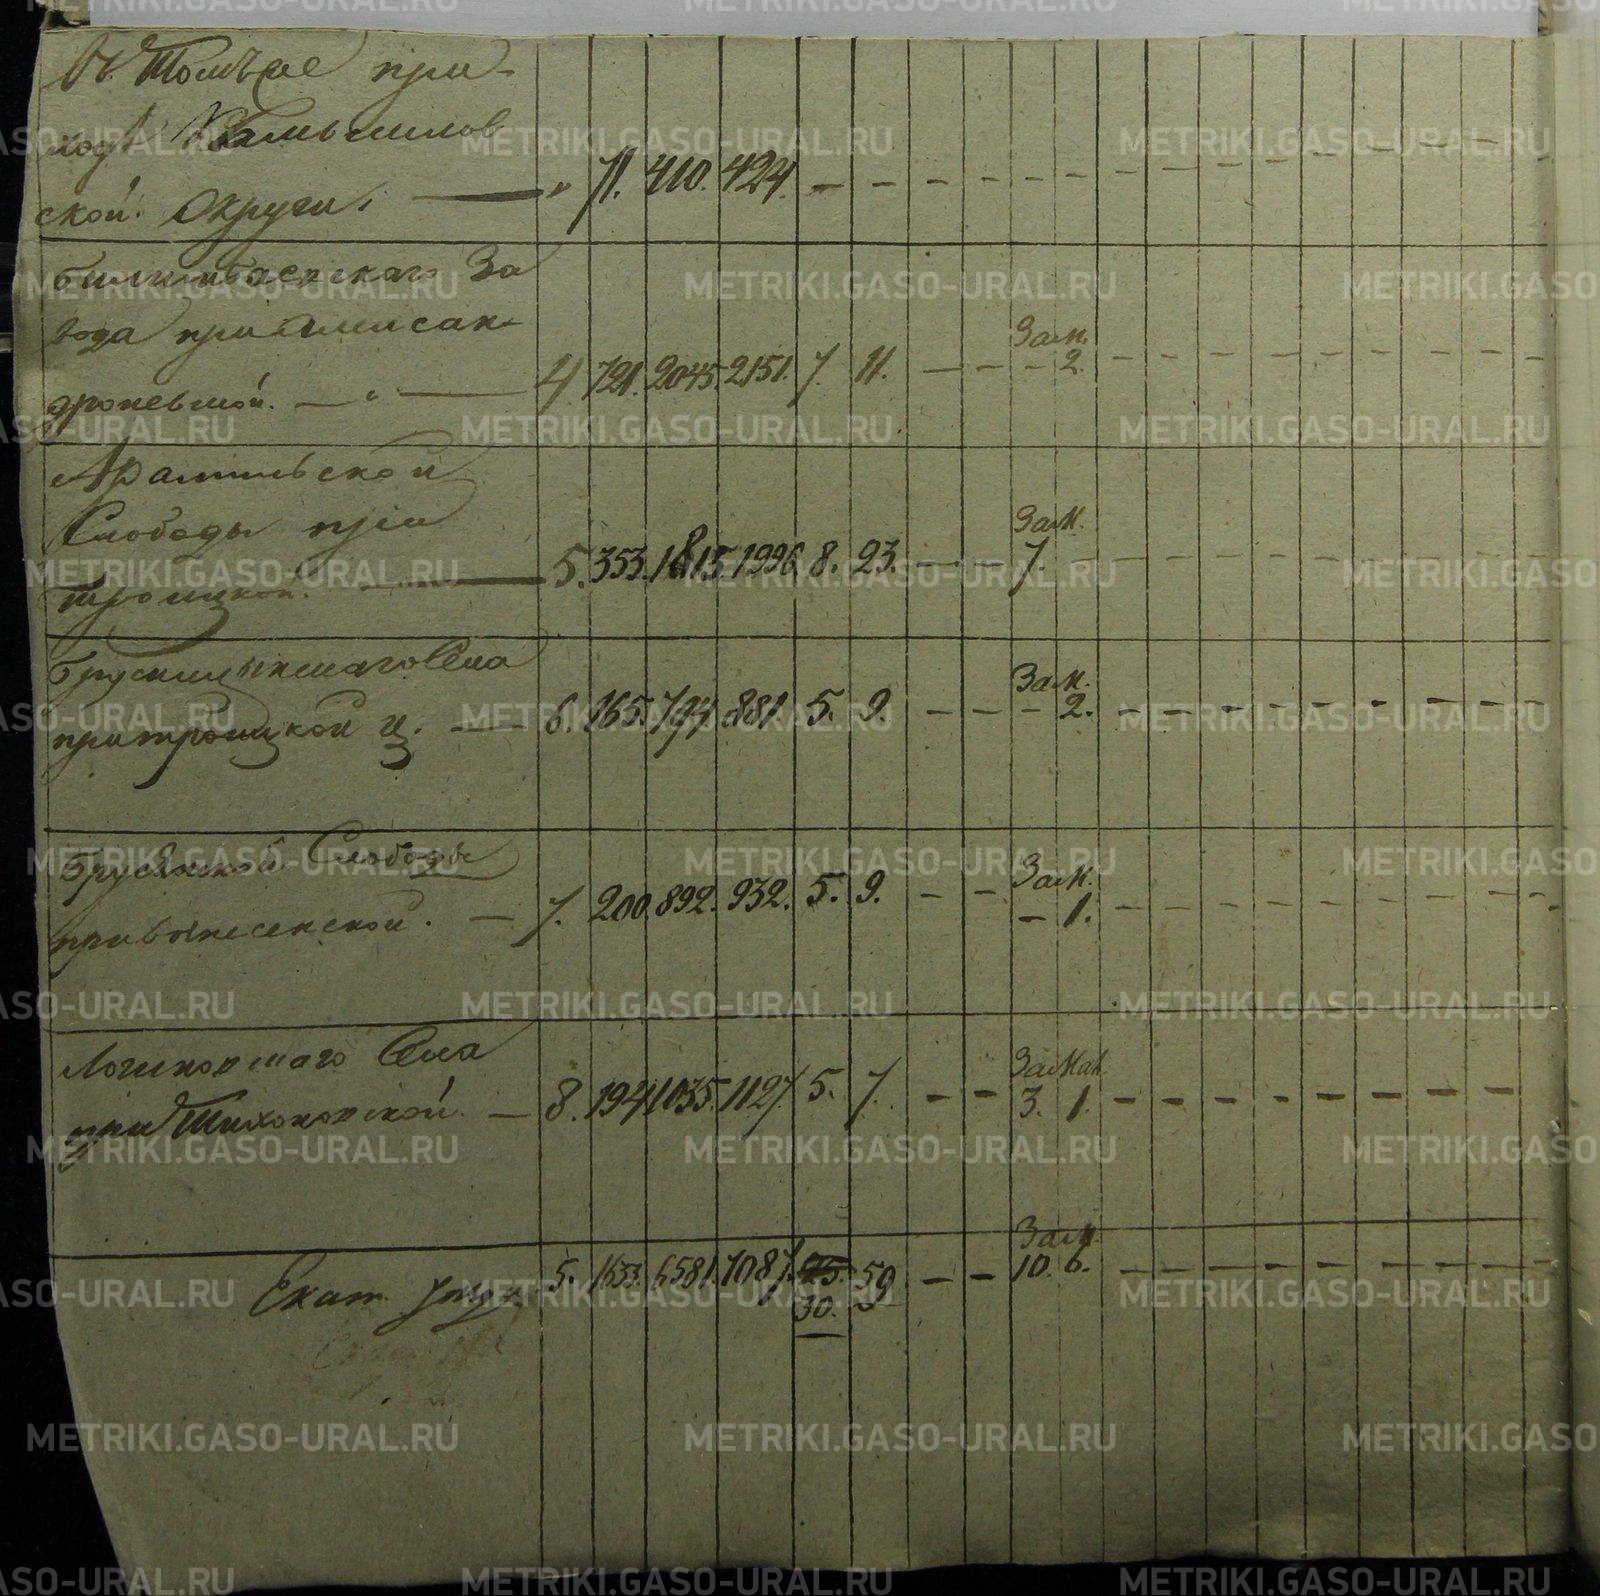 Въ Томъ же при-
ходѣ Камышлов
ской округи. — " 71. 410. 424. — — — — — — — — — — — — —
Билимбаевскаго За
вода при Алексан-
дроневской. — " — 4. 721. 2045. 2151. 7. 11. — — — 2. — — — — — — — —
За М.
Арамильской
Слободы при
Троицкой. — 5. 353. 1815. 1996. 8. 23. — — 7. — — — — — — — — —
За М.
Села
при Троицкой ц. — 6. 165. 794. 881. 5. 9. — — — 2. — — — — — — — —
За М.
Брусянской Слободы
при Вознесенской. — 7. 200. 892. 932. 5. 9. — — — 1. — — — — — — — —
За М.
Логиновскаго Села
при Тихоновской. — 8. 194. 1035. 1127. 5. 7. — — 3. 1. — — — — — — — —
Екат. 5. 1633. 6581. 7087. 25. 59 — — 10. 6. — — — — — — — —
За М.
30.
METRIKI.GASO-URAL.RU